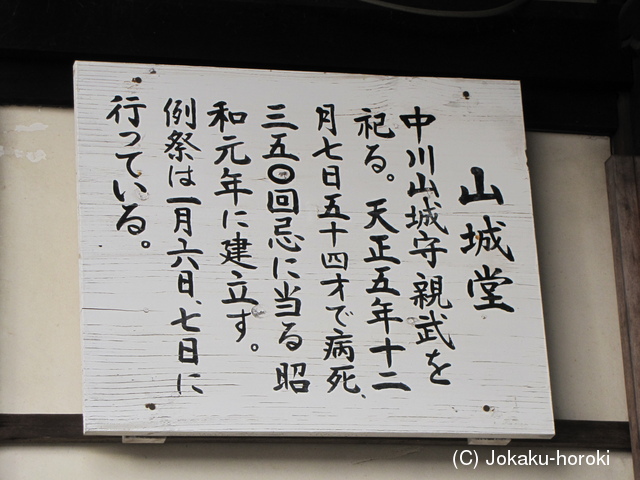 山城堂
中川山城守親武を
祀る。天正五年十二
月七日五十四才で病死、
三五〇回忌に当る昭
和元年に建立す。
例祭は一月六日、七日に
行っている。
(C) Jokaku-horoki